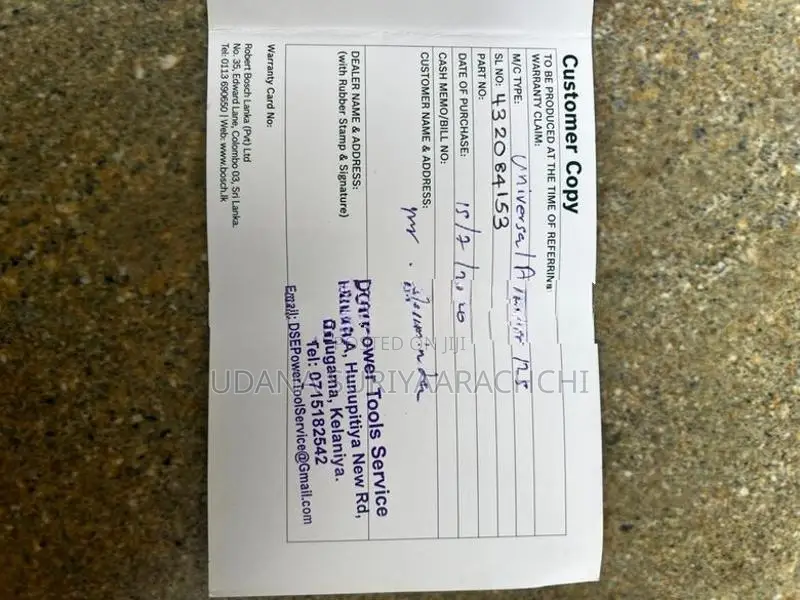 Customer Copy
TO BE PRODUCED AT THE TIME OF REFERRING
WARRANTY CLAIM:
M/C TYPE: Universal
SL NO: 432084153
PART NO:
DATE OF PURCHASE: 15/7/2020
CASH MEMO/BILL NO:
CUSTOMER NAME & ADDRESS: Mr.
DEALER NAME & ADDRESS:
(with Rubber Stamp & Signature)
Power Tools Service
A, Hunupitiya New Rd,
Dalugama, Kelaniya.
Tel: 0715182542
Email: DSEPowerToolService@Gmail.com
Warranty Card No:
Robert Bosch Lanka (Pvt) Ltd
No. 35, Edward Lane, Colombo 03, Sri Lanka.
Tel: 0113 690650 | Web: www.bosch.lk
POSTED ON JIJI
UDANA SURIYAARACHCHI